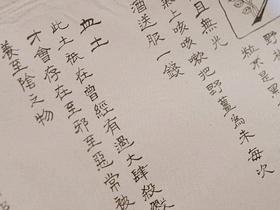 且無光
上咳嗽把野薑為末每次
酒送服一錢
血土
此土祇在曾經有過大肆殺戮
才會存在至邪至惡常被
養至陰之物